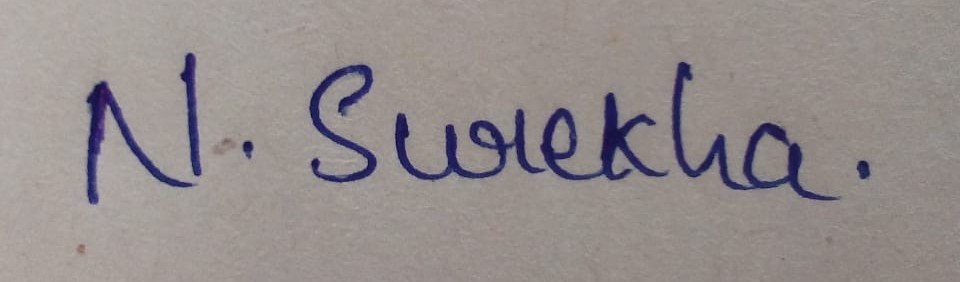 N. Surekha.